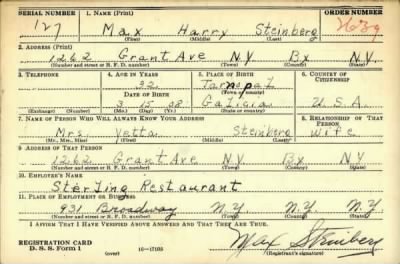 SERIAL NUMBER 1. NAME (Print) ORDER NUMBER
127 Max Harry Steinberg 2639
(First) (Middle) (Last)
2. ADDRESS (Print)
1262 Grant Ave N.Y. Bx N.Y.
(Number and street or R. F. D. number) (Town) (County) (State)
3. TELEPHONE 4. AGE IN YEARS 5. PLACE OF BIRTH 6. COUNTRY OF CITIZENSHIP
32 Tarnopal
DATE OF BIRTH (Town or county)
3 15 08 Galicia U.S.A.
(Exchange) (Number) (Mo.) (Day) (Yr.) (State or country)
7. NAME OF PERSON WHO WILL ALWAYS KNOW YOUR ADDRESS 8. RELATIONSHIP OF THAT PERSON
Mrs. Yetta Steinberg wife
(Mr., Mrs., Miss) (First) (Middle) (Last)
9. ADDRESS OF THAT PERSON
1262 Grant Ave N.Y. Bx N.Y.
(Number and street or R. F. D. number) (Town) (County) (State)
10. EMPLOYER'S NAME
Sterling Restaurant
11. PLACE OF EMPLOYMENT OR BUSINESS
931 Broadway N.Y. N.Y. N.Y.
(Number and street or R. F. D. number) (Town) (County) (State)
I AFFIRM THAT I HAVE VERIFIED ABOVE ANSWERS AND THAT THEY ARE TRUE.
REGISTRATION CARD
D. S. S. Form 1 (over) 16—17105 Max Steinberg
(Registrant's signature)